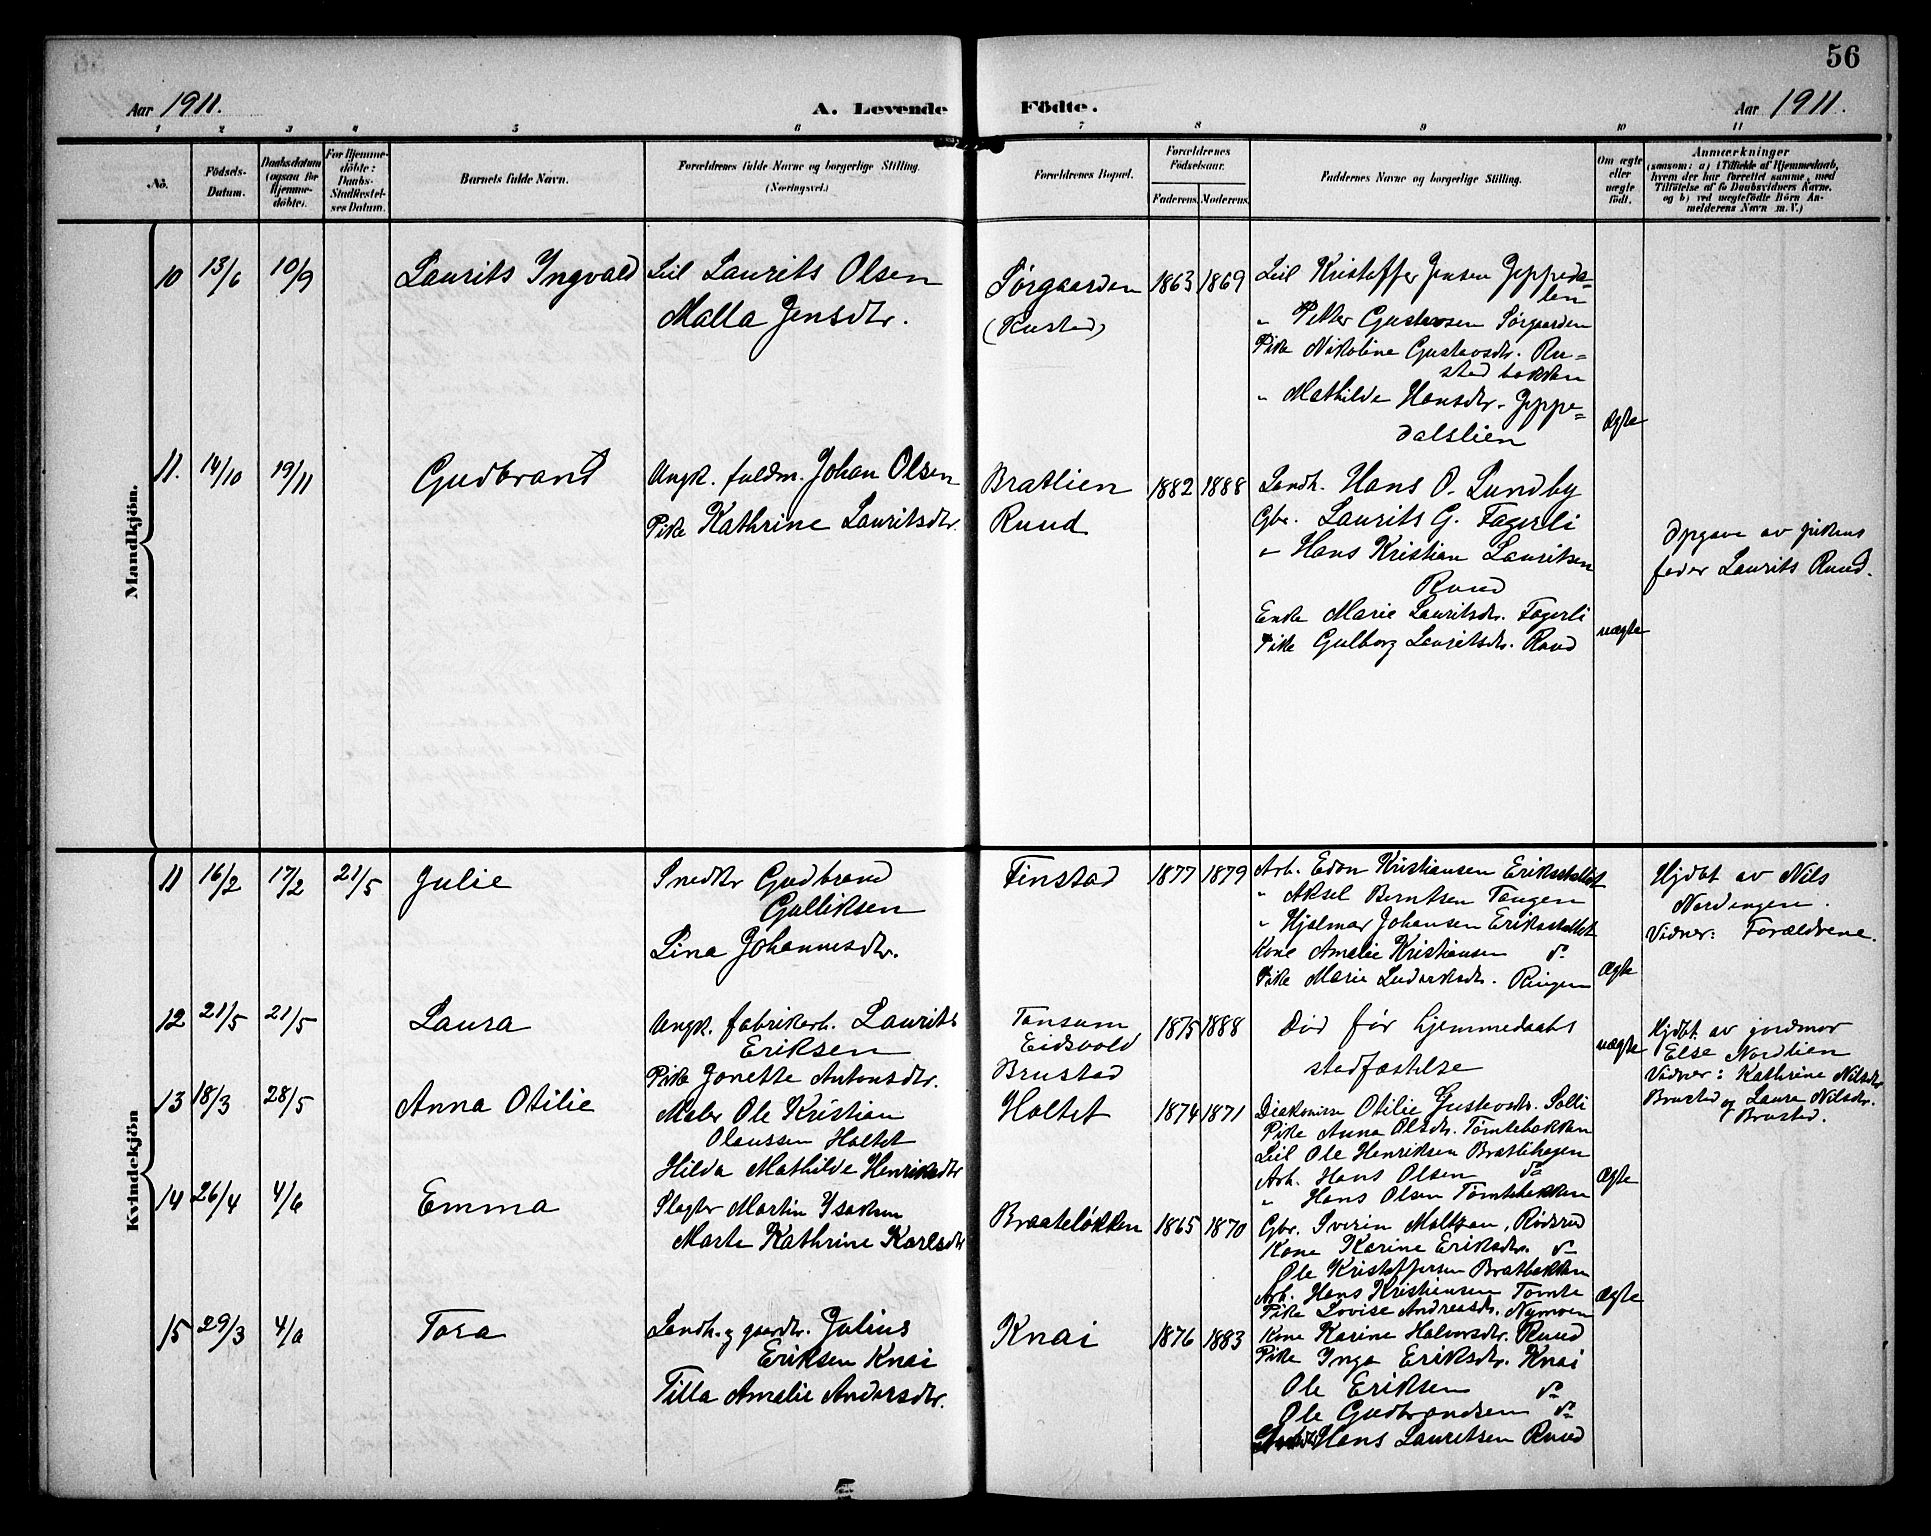 56
Aar 1911.
A. Levende Födte.
Aar 1911.
1 2 3 4 5 6 7 8 9 10 11
No.
Födsels-Datum.
Daabsdatum (ogsaa for Hjemmedöbte).
For Hjemmedöbte: Daabs-Stadfæstelses Datum.
Barnets fulde Navn.
Forældrenes fulde Navne og borgerlige Stilling. (Næringsvei.)
Forældrenes Bopæl.
Forældrenes Födselsaar.
Faderens. Moderens.
Faddernes Navne og borgerlige Stilling.
Om ægte eller uægte födt.
Anmærkninger
(saasom: a) i Tilfælde af Hjemmedaab, hvem der har forrettet samme, med Tilföielse af to Daabsvidners Navne, og b) ved uægtefödte Börn Anmelderens Navn m. V.)
Mandkjön.
10 13/6 10/9 Laurits Ingvald
Leil Laurits Olsen
Malla Jensdtr.
Sørgaarden
(Rustad)
1863 1869
Leil Kristoffer Jensen Jeppeda-
lien
" Petter Gustavsen Sørgaarden
Pike Nikoline Gustavsdtr. Ru-
stadbakken
" Mathilde Hansdtr. Jeppe-
dalslien
ægte
11. 14/10 19/11 Gudbrand
Ungk. fuldm. Johan Olsen
Pike Kathrine Lauritsdtr.
Bratlien
Ruud
1882 1888
Landh. Hans O. Lundby
Gbr. Laurits G. Fagerli
" Hans Kristian Lauritsen
Ruud
Enke Marie Lauritsdtr. Fagerli
Pike Gulborg Lauritsdtr. Ruud
uægte
Opgave av pikens
fader Laurits Ruud.
Kvindekjön
11 16/2 17/2 21/5 Julie
Snedkr Gudbrand
Gulliksen
Lina Johannesdtr.
Finstad
1877 1879
Arb. Edon Kristiansen Eriksstallet
" Aksel Berntsen Tangen
" Hjalmar Johansen Eriksstallet
Kone Amalie Kristiansen do
Pike Marie Ludviksdtr. Ringen
ægte
Hjdbt av Nils
Nordengen.
Vidner: Forældrene.
12 21/5 21/5 Laura
Ungk. fabrikarb. Laurits
Eriksen
Pike Jonette Antonsdtr.
Tansum
Eidsvold
Brustad
1875 1888
Død før hjemmedaabs
stadfæstelse
uægte
Hjdbt. av jordmor
Else Nordlien
Vidner: Kathrine Nilsdtr
Brustad og Laura Nilsdtr.
Brustad.
13 18/3 28/5 Anna Otilie
Maler Ole Kristian
Olaussen Haltet
Hilda Mathilde Henriksdtr
Haltet
1874 1871
Diakonisse Otilie Gustavsdtr. Solli
Pike Anna Olsdtr. Tømtebakken
Leil Ole Henriksen Bratlihagen
Arb. Hans Olsen do
" Hans Olsen Tømtebakken
ægte
14 26/4 4/6 Emma
Slagter Martin Isaksen
Marte Kathrine Karlsdtr
Braateløkken
1865 1870
Gbr. Sverin Maltzan, Rødsrud
Kone Karine Eriksdtr. do
Ole Kristoffersen Bratbakken
Arb. Hans Kristiansen Tømte
Pike Lovise Andreasdtr. Nymoen
ægte
15 29/3 Tora
Landh. og gaardbr. Julius
Eriksen Knai
Tilla Amalie Andersdtr.
Knai
1876 1883
Kone Karine Halvorsdtr. Ruud
Pike Inga Eriksdtr. Knai
Ole Eriksen do
Ole Gudbrandsen do
Hans Lauritsen Ruud